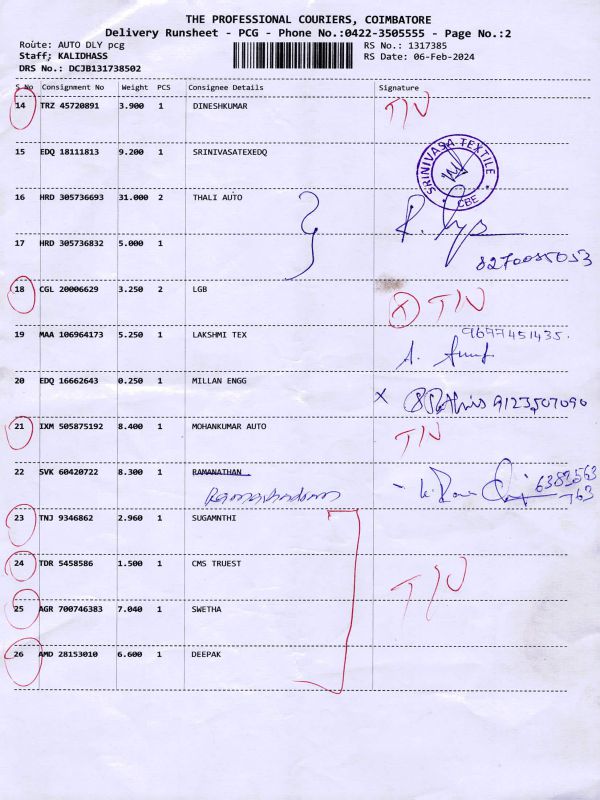 THE PROFESSIONAL COURIERS, COIMBATORE
Delivery Runsheet - PCG - Phone No.:0422-3505555 - Page No.:2
Route: AUTO DLY pcg
Staff: KALIDHASS
DRS No.: DCJB131738502
RS No.: 1317385
RS Date: 06-Feb-2024
S No Consignment No Weight PCS Consignee Details Signature
14 TRZ 45720891 3.900 1 DINESHKUMAR T/N
15 EDQ 18111813 9.200 1 SRINIVASATEXEDQ
SRINIVASA TEXTILE
CBE
16 HRD 305736693 31.000 2 THALI AUTO
17 HRD 305736832 5.000 1
18 CGL 20006629 3.250 2 LGB T/N
19 MAA 106964173 5.250 1 LAKSHMI TEX 9697451435.
20 EDQ 16662643 0.250 1 MILLAN ENGG X 9123507090
21 IXM 505875192 8.400 1 MOHANKUMAR AUTO T/N
22 SVK 60420722 8.300 1 RAMANATHAN 6383563
763
23 TNJ 9346862 2.960 1 SUGAMNTHI
24 TDR 5458586 1.500 1 CMS TRUEST T/N
25 AGR 700746383 7.040 1 SWETHA
26 AMD 28153010 6.600 1 DEEPAK